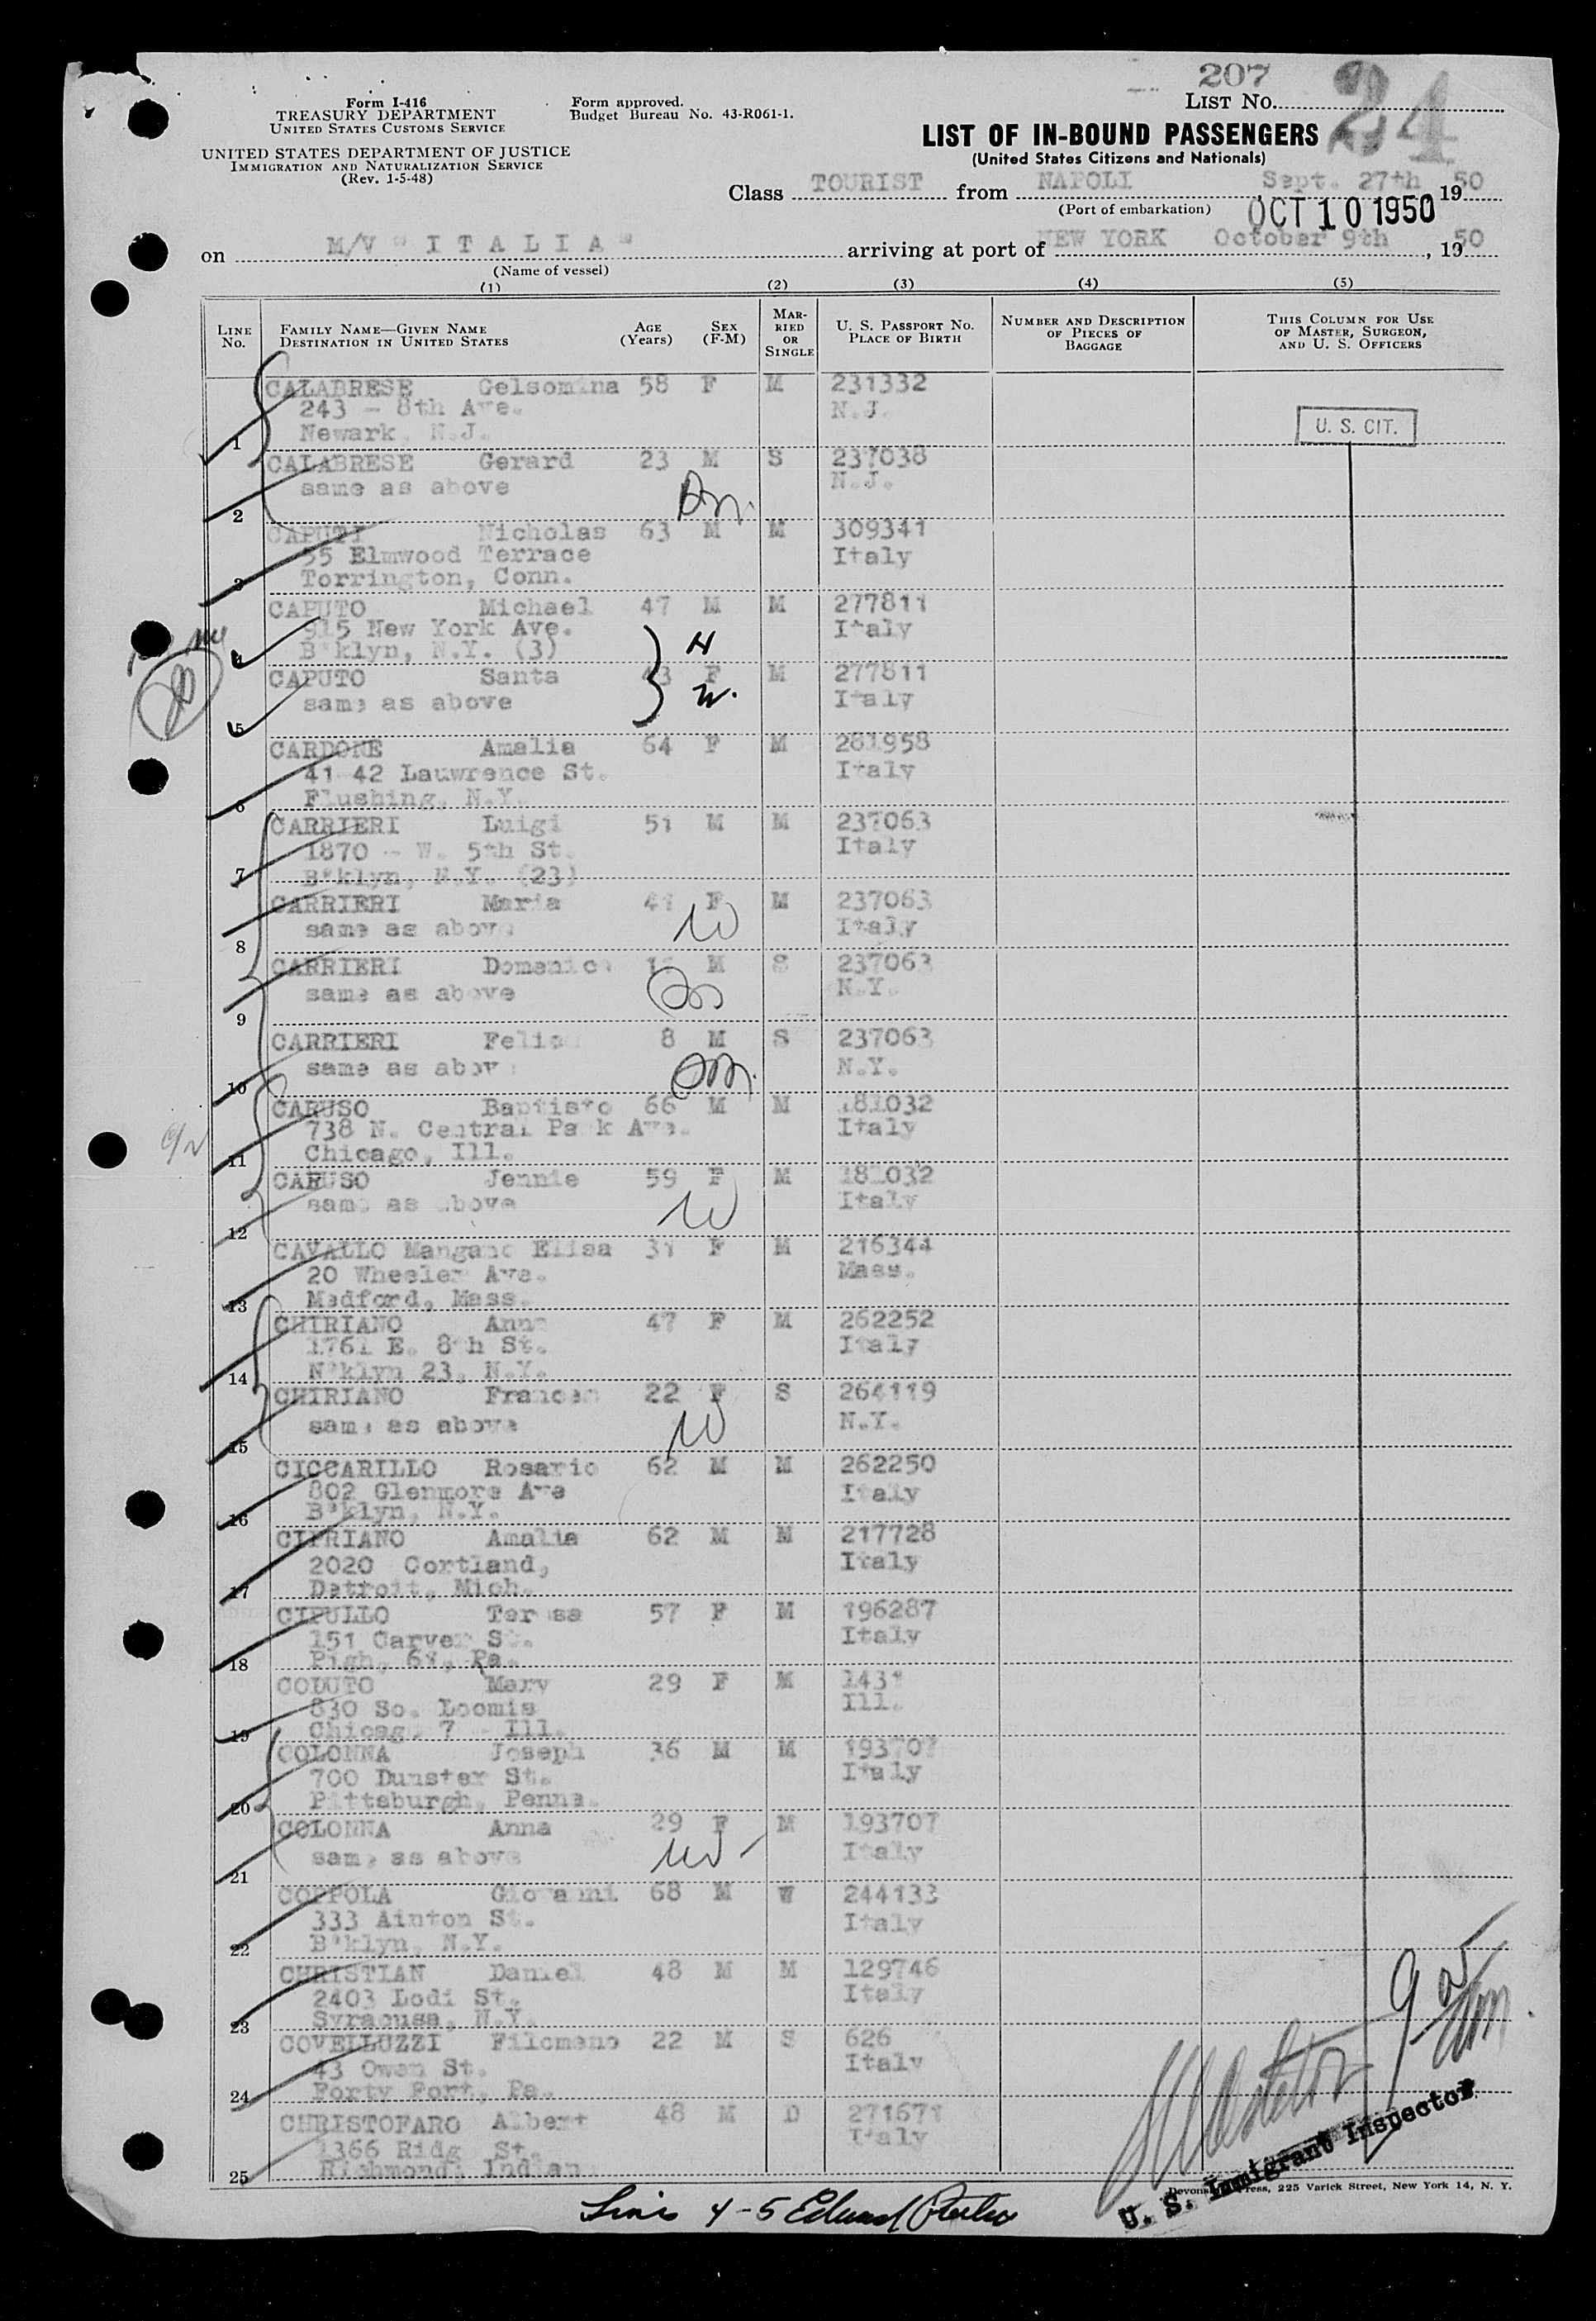 207
24
Form I-416
TREASURY DEPARTMENT
UNITED STATES CUSTOMS SERVICE
Form approved.
Budget Bureau No. 43-R061-1.
LIST NO.
UNITED STATES DEPARTMENT OF JUSTICE
IMMIGRATION AND NATURALIZATION SERVICE
(Rev. 1-5-48)
LIST OF IN-BOUND PASSENGERS
(United States Citizens and Nationals)
Class TOURIST from NAPOLI Sept. 27th 1950
(Port of embarkation)
OCT 10 1950
on M/V "ITALIA" arriving at port of NEW YORK October 9th, 1950
(Name of vessel)
(1) (2) (3) (4) (5)
LINE NO. FAMILY NAME—GIVEN NAME DESTINATION IN UNITED STATES AGE (Years) SEX (F-M) MARRIED OR SINGLE U. S. PASSPORT NO. PLACE OF BIRTH NUMBER AND DESCRIPTION OF PIECES OF BAGGAGE THIS COLUMN FOR USE OF MASTER, SURGEON, AND U. S. OFFICERS
CALABRESE Gelsomina 58 F M 231332
243 - 8th Ave. N.J.
1 Newark, N.J.
U. S. CIT.
CALABRESE Gerard 23 M S 237038
same as above N.J.
2
CAPUTI Nicholas 63 M M 309341
55 Elmwood Terrace Italy
3 Torrington, Conn.
CAPUTO Michael 47 M M 277811
915 New York Ave. Italy
4 B'klyn, N.Y. (3) H
CAPUTO Santa 43 F M 277811
same as above W. Italy
5
CARDONE Amalia 64 F M 281958
41-42 Lauwrence St. Italy
6 Flushing, N.Y.
CARRIERI Luigi 51 M M 237063
1870 - W. 5th St. Italy
7 B'klyn, N.Y. (23)
CARRIERI Maria 41 F M 237063
same as above W Italy
8
CARRIERI Domenico M S 237063
same as above N.Y.
9
CARRIERI 8 M S 237063
same as above N.Y.
10
CARUSO Baptisto 66 M M 181032
738 N. Central Park Ave. Italy
11 Chicago, Ill.
CARUSO Jennie 59 F M 181032
same as above W Italy
12
CAVALLO Mangano Elisa 31 F M 216344
20 Wheeler Ave. Mass.
13 Medford, Mass.
CHIRIANO Anna 47 F M 262252
1761 E. 8th St. Italy
14 N'klyn 23, N.Y.
CHIRIANO 22 F S 264119
same as above W N.Y.
15
CICCARILLO Rosario 62 M M 262250
802 Glenmore Ave Italy
16 B'klyn, N.Y.
CIPRIANO Amalia 62 M M 217728
2020 Cortland, Italy
17 Detroit, Mich.
CIPULLO Teresa 57 F M 196287
151 Carver St. Italy
18 Pa.
CODUTO Mary 29 F M 1431
830 So. Loomis Ill.
19 Chicago 7 - Ill.
COLONNA Joseph 36 M M 193707
700 Dunster St. Italy
20 Pittsburgh, Penna.
COLONNA Anna 29 F M 193707
same as above W Italy
21
COPPOLA Giovanni 68 M W 244133
333 Ainton St. Italy
22 B'klyn, N.Y.
CHRISTIAN Daniel 48 M M 129746
2403 Lodi St. Italy
23 Syracuse, N.Y.
COVELLUZZI Filomeno 22 M S 626
43 Owen St. Italy
24 Forty Fort, Pa.
CHRISTOFARO Albert 48 M D 271671
1366 Ridg St. Italy
25 Richmond, Indian
U. S. Immigrant Inspector
Press, 225 Varick Street, New York 14, N. Y.
4-5